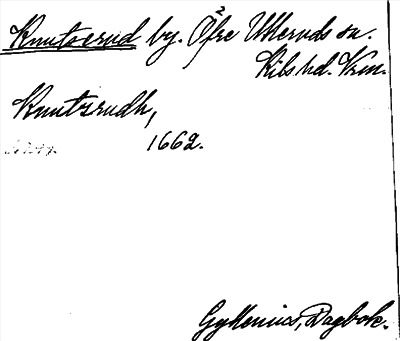 Knutserud by. Öfre Ulleruds sn.
Kils hd. Vrm.
Knutzrudh,
1662.
Gyllenius, Dagbok.